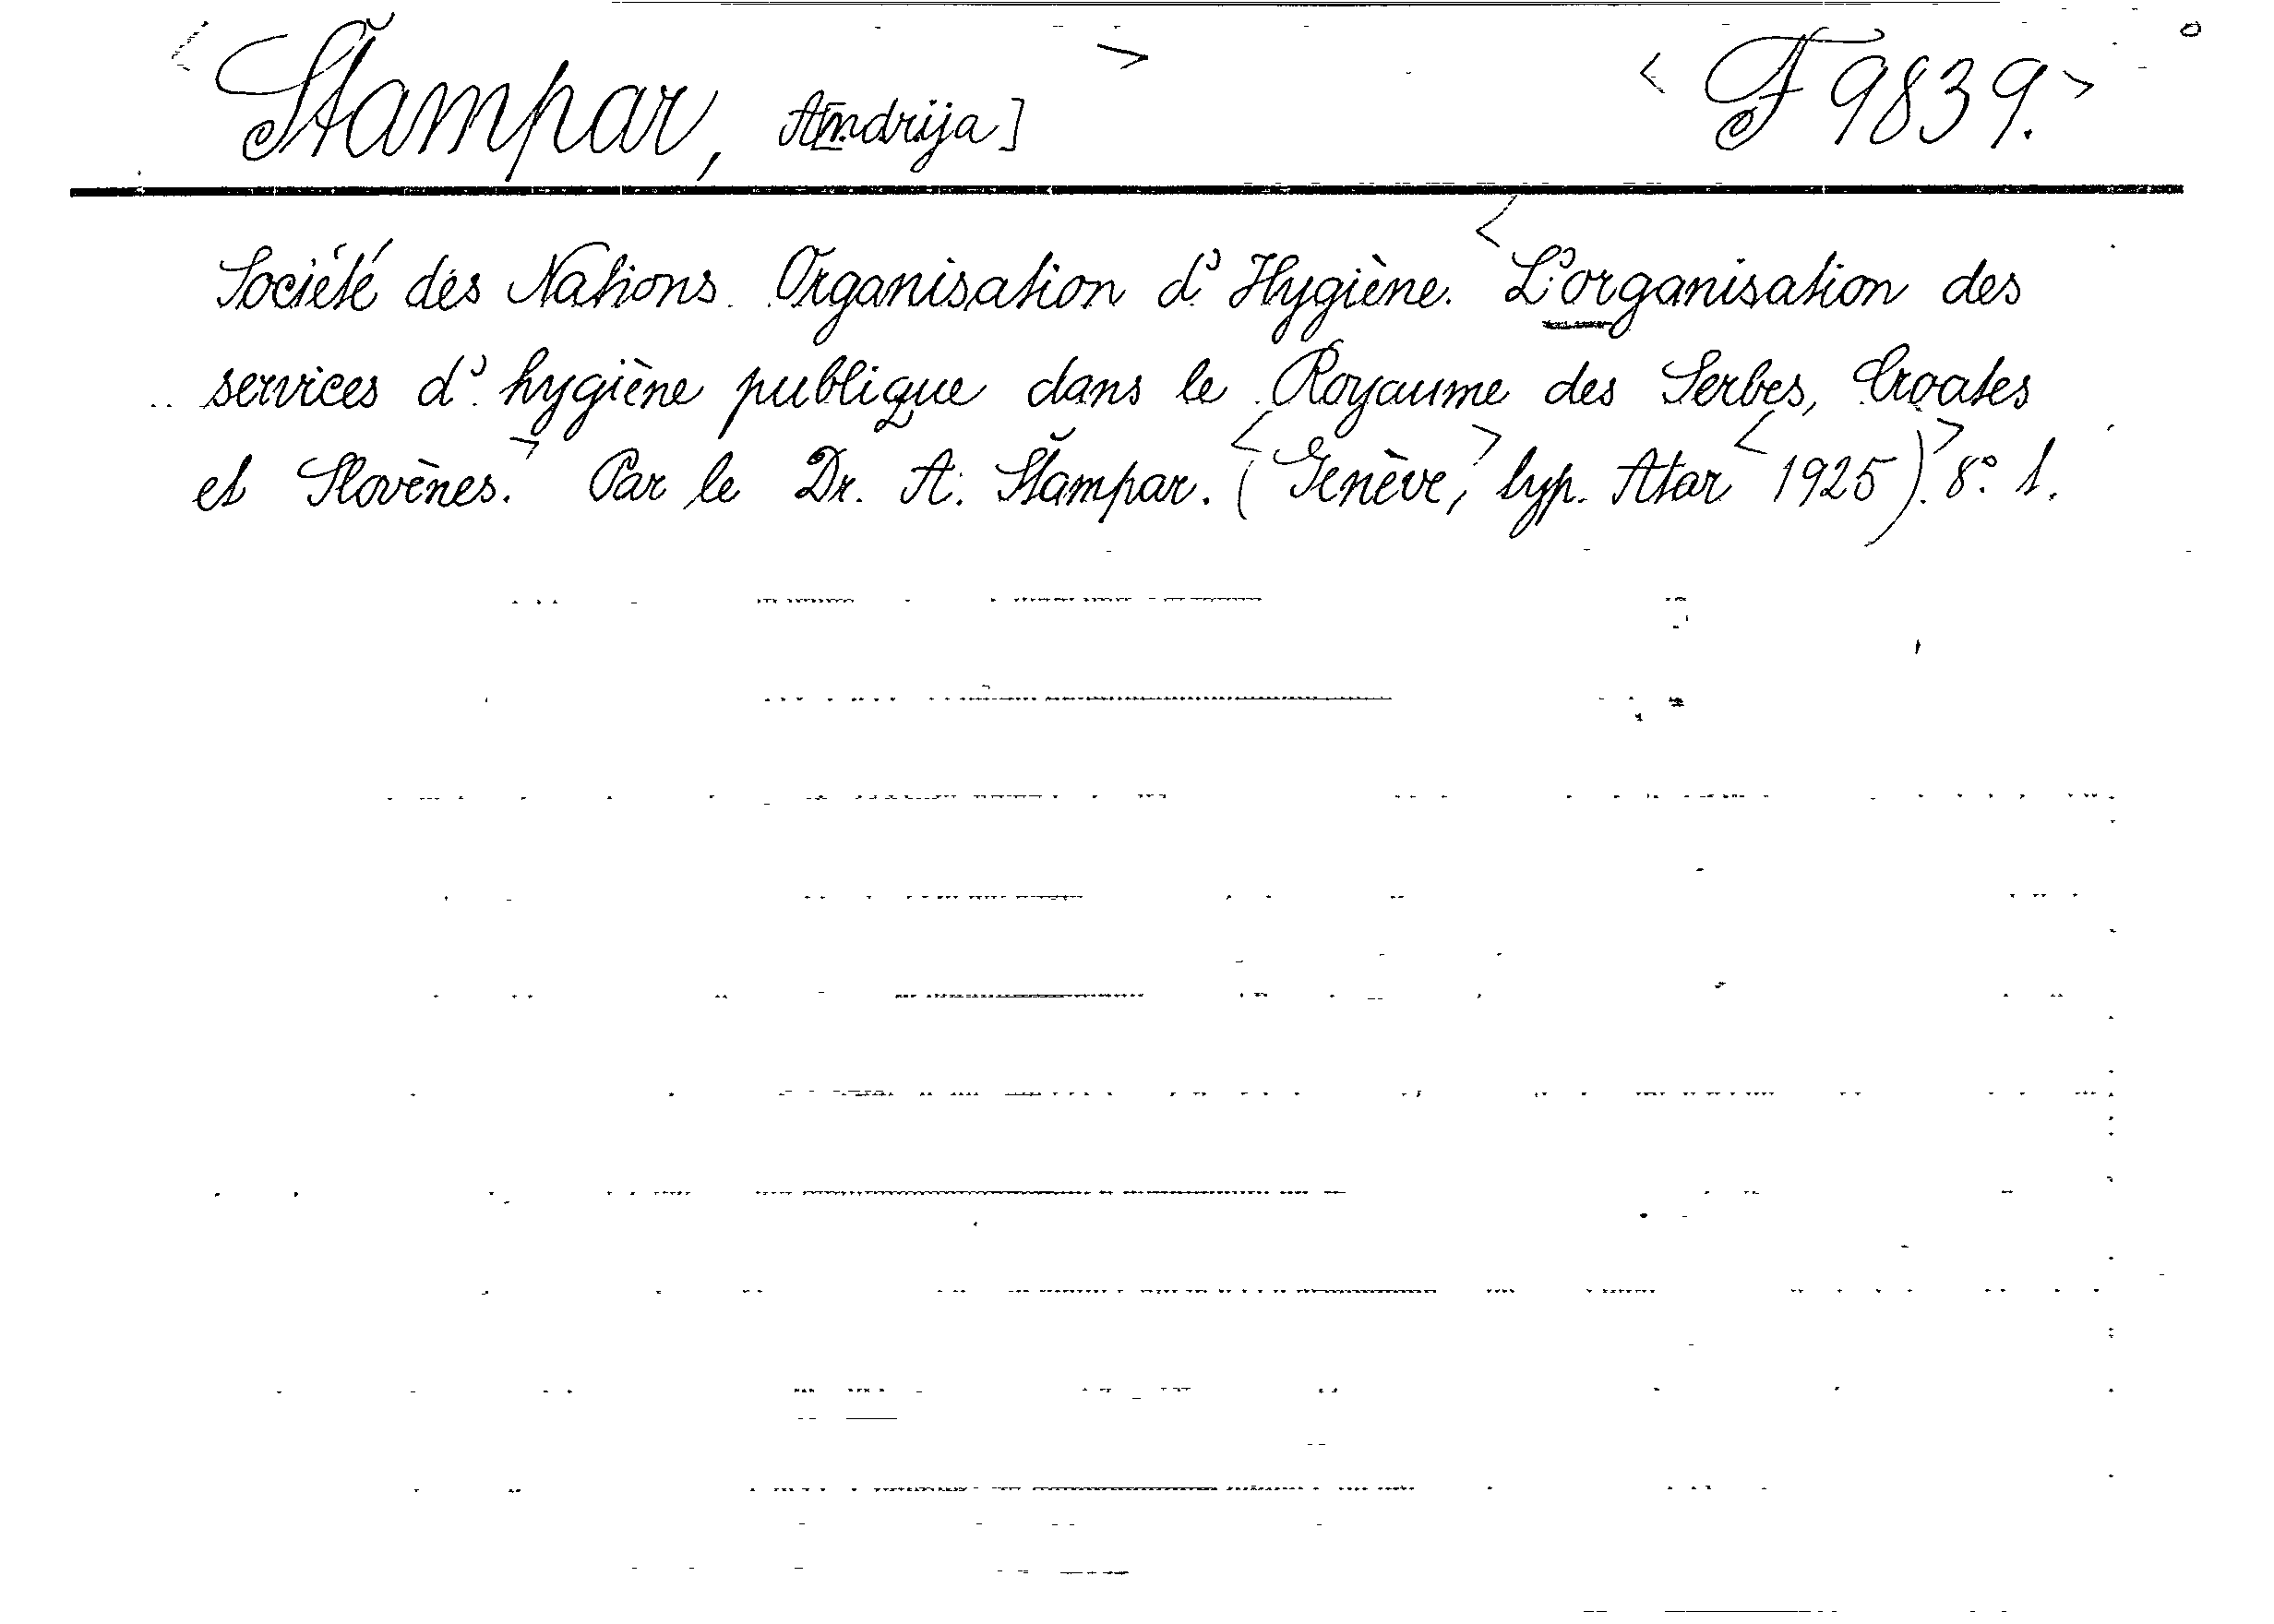 <Štampar, A[ndrija]> <F 9839.>
Société des Nations. Organisation d'Hygiène. <L'organisation des
services d'hygiène publique dans le Royaume des Serbes, Croates
et Slovènes.> Par le Dr. A. Štampar. (<Genève,> typ. Atar <1925).> 8° 1.